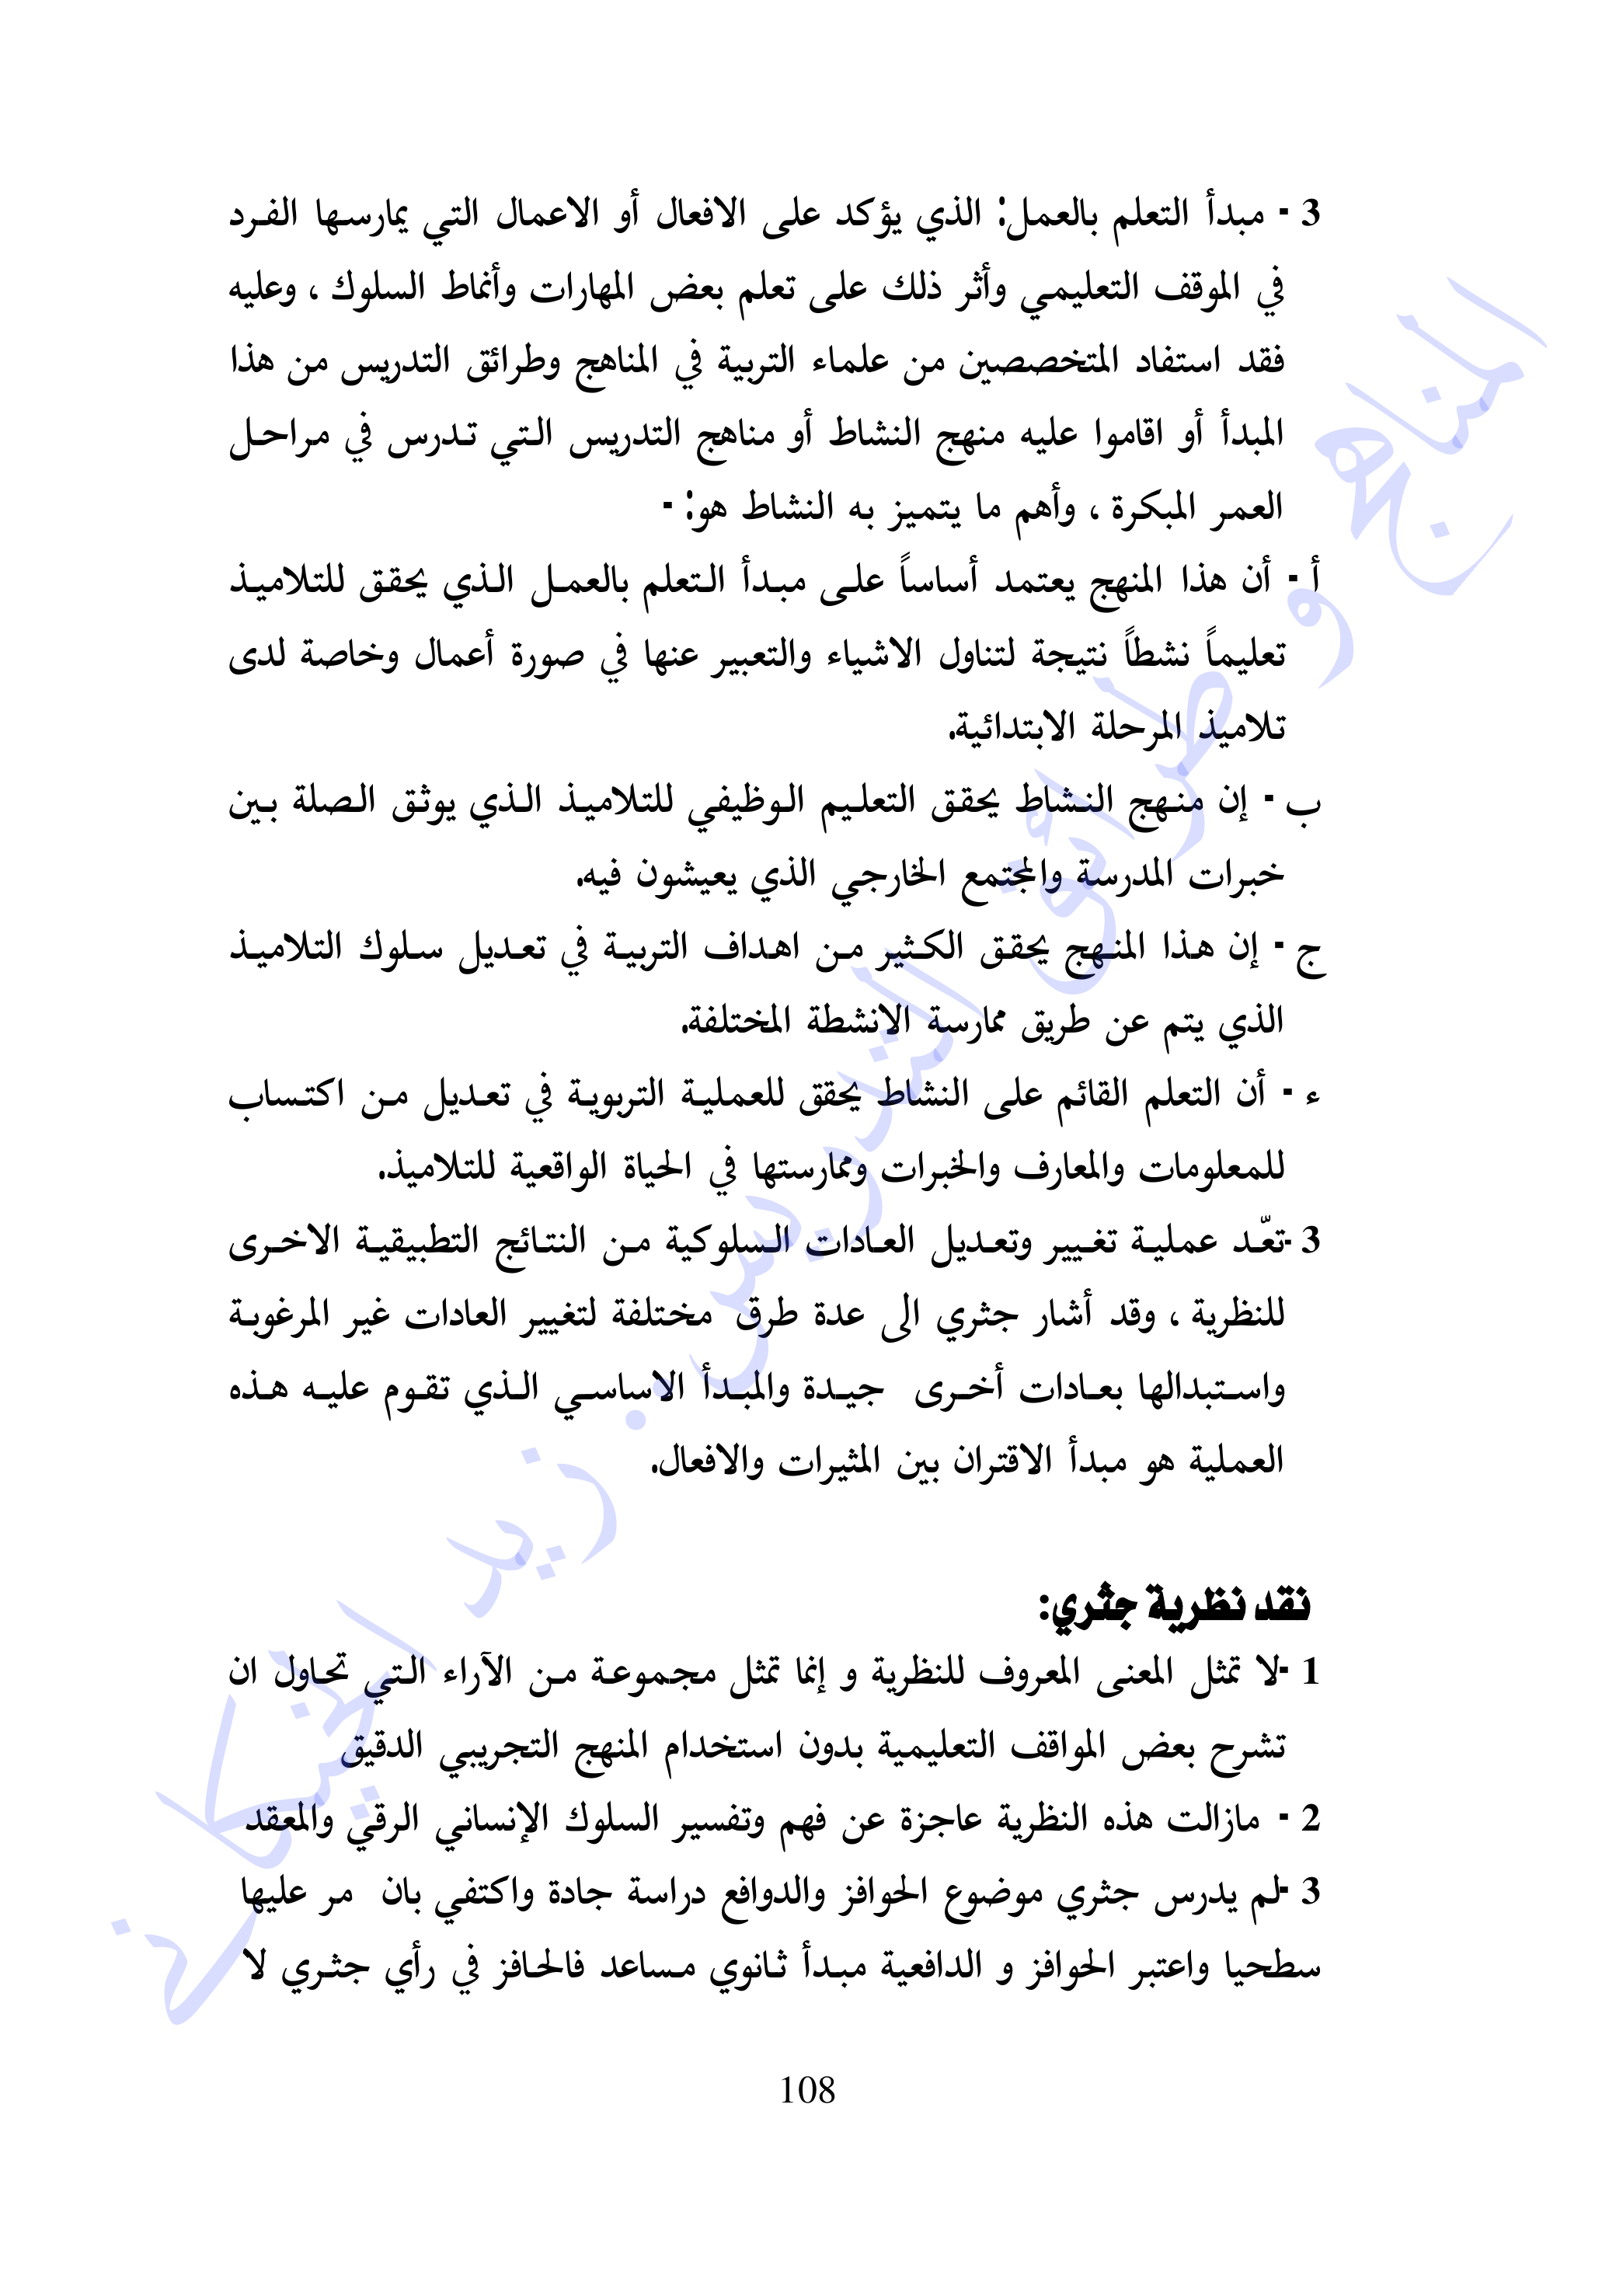 3 - مبدأ التعلم بالعمل: الذي يؤكد على الافعال أو الاعمال التي يمارسها الفرد
في الموقف التعليمي وأثر ذلك على تعلم بعض المهارات وأنماط السلوك ، وعليه
فقد استفاد المتخصصين من علماء التربية في المناهج وطرائق التدريس من هذا
المبدأ أو اقاموا عليه منهج النشاط أو مناهج التدريس التي تدرس في مراحل
العمر المبكرة ، وأهم ما يتميز به النشاط هو: -
أ - أن هذا المنهج يعتمد أساساً على مبدأ التعلم بالعمل الذي يحقق للتلاميذ
تعليماً نشطاً نتيجة لتناول الاشياء والتعبير عنها في صورة أعمال وخاصة لدى
تلاميذ المرحلة الابتدائية.
ب - إن منهج النشاط يحقق التعليم الوظيفي للتلاميذ الذي يوثق الصلة بين
خبرات المدرسة والمجتمع الخارجي الذي يعيشون فيه.
ج - إن هذا المنهج يحقق الكثير من اهداف التربية في تعديل سلوك التلاميذ
الذي يتم عن طريق ممارسة الانشطة المختلفة.
ء - أن التعلم القائم على النشاط يحقق للعملية التربوية في تعديل من اكتساب
للمعلومات والمعارف والخبرات وممارستها في الحياة الواقعية للتلاميذ.
3 -تعّد عملية تغيير وتعديل العادات السلوكية من النتائج التطبيقية الاخرى
للنظرية ، وقد أشار جثري الى عدة طرق مختلفة لتغيير العادات غير المرغوبة
واستبدالها بعادات أخرى جيدة والمبدأ الاساسي الذي تقوم عليه هذه
العملية هو مبدأ الاقتران بين المثيرات والافعال.
نقد نظرية جثري:
1 -لا تمثل المعنى المعروف للنظرية و إنما تمثل مجموعة من الآراء التي تحاول ان
تشرح بعض المواقف التعليمية بدون استخدام المنهج التجريبي الدقيق
2 - مازالت هذه النظرية عاجزة عن فهم وتفسير السلوك الإنساني الرقي والمعقد
3 -لم يدرس جثري موضوع الحوافز والدوافع دراسة جادة واكتفي بان مر عليها
سطحيا واعتبر الحوافز و الدافعية مبدأ ثانوي مساعد فالحافز في رأي جثري لا
108
المناهج و طرائق التدريس . زيد الخيكاني